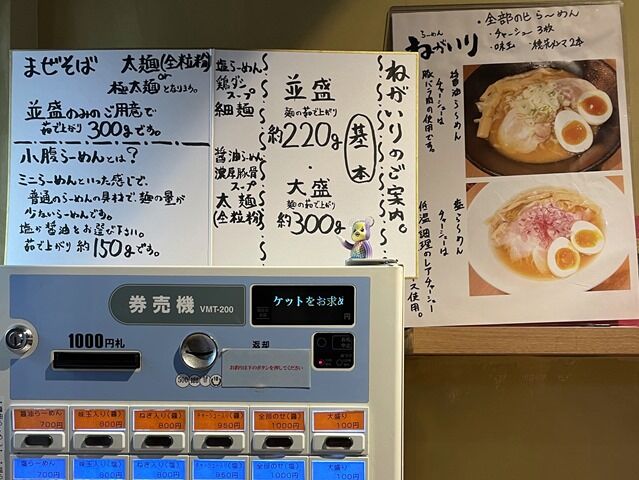 まぜそば
太麺(全粒粉)
or
極太麺となります。
並盛のみのご用意で
茹で上がり300gです。
小腹らーめんとは?
ミニらーめんといった感じで、
普通のらーめんの具材で、麺の量が
少ないらーめんです。
塩か醤油をお選び下さい。
茹で上がり約150gです。
ねがいりのご案内。
基本
並盛
麺の茹で上がり
約220g
・
大盛
麺の茹で上がり
約300g
塩らーめん
鶏ダシ
スープ
細麺
醤油らーめん
濃厚豚骨
スープ
太麺
(全粒粉)
らーめん
ねがいり
・全部のせらーめん
・チャーシュー3枚
・味玉
・穂先メンマ2本
醤油らーめん
チャーシューは
豚バラ肉の使用です。
塩らーめん
チャーシューは
低温調理のレアチャーシュー
使用。
券売機 VMT-200
ケットをお求め
円
1000円札
返却
お釣りは下のボタンを押してください
醤油らーめん
700円
味玉入り(醤)
800円
ねぎ入り(醤)
800円
チャーシュー入り(醤)
950円
全部のせ(醤)
1000円
大盛り
100円
塩らーめん
700円
味玉入り(塩)
800円
ねぎ入り(塩)
800円
チャーシュー入り(塩)
950円
全部のせ(塩)
1000円
大盛り
100円